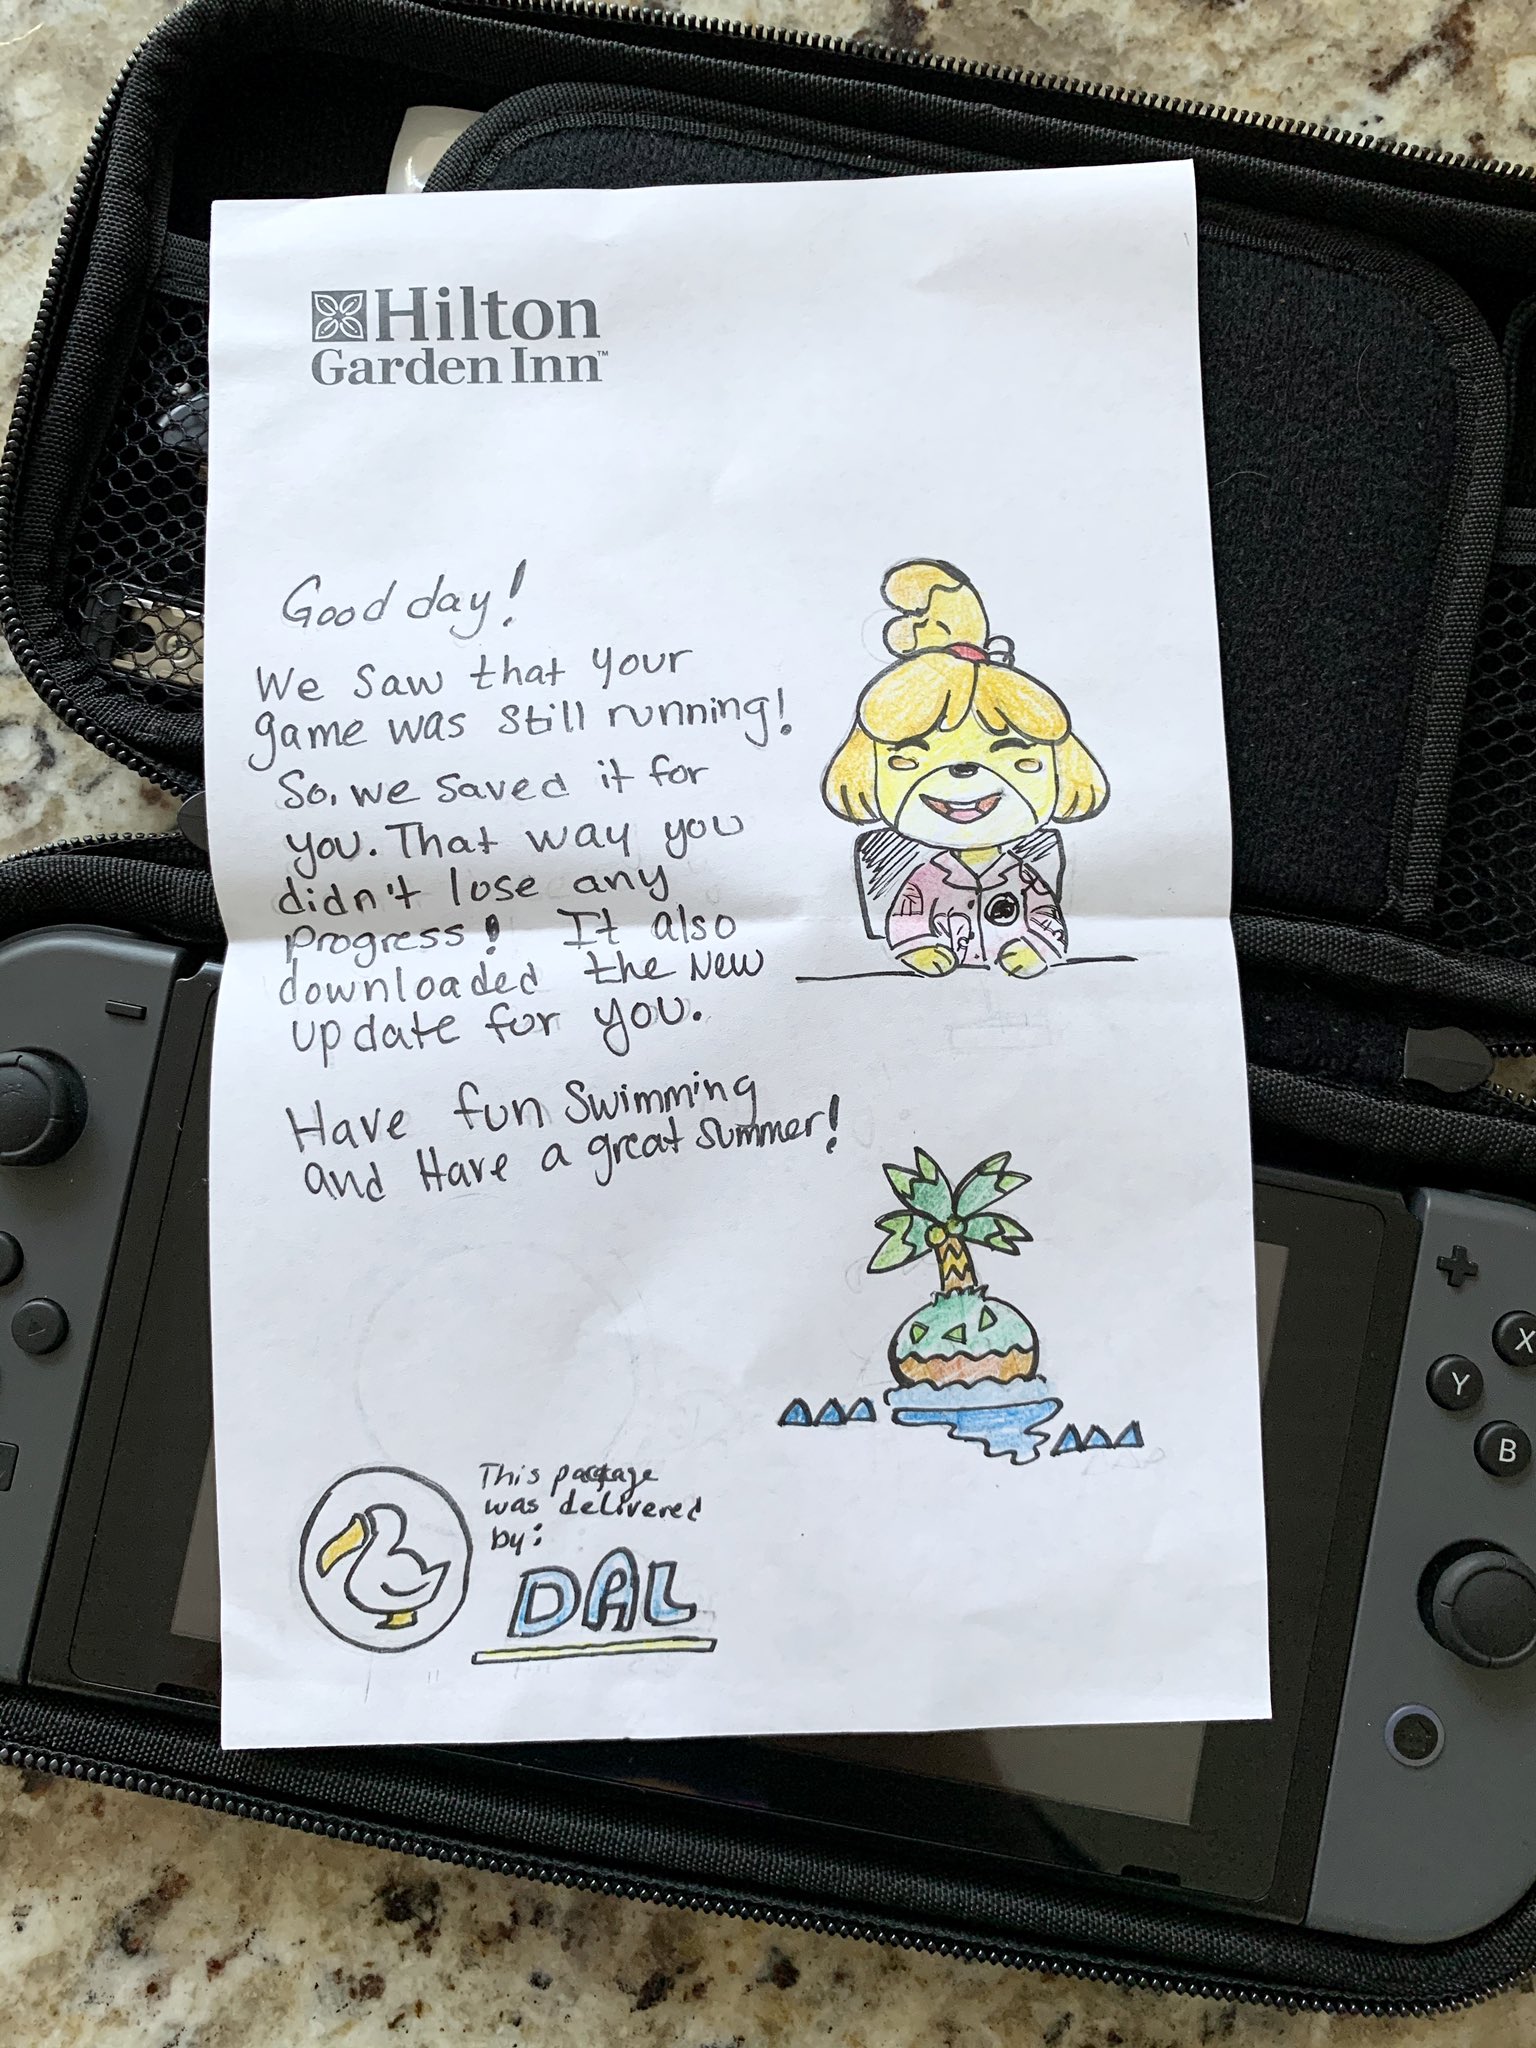 Hilton
Garden Inn™
Good day!
We saw that your
game was still running!
So, we saved it for
you. That way you
didn't lose any
progress! It also
downloaded the New
update for you.
Have fun swimming
and Have a great summer!
This package
was delivered
by:
DAL
X
Y
B